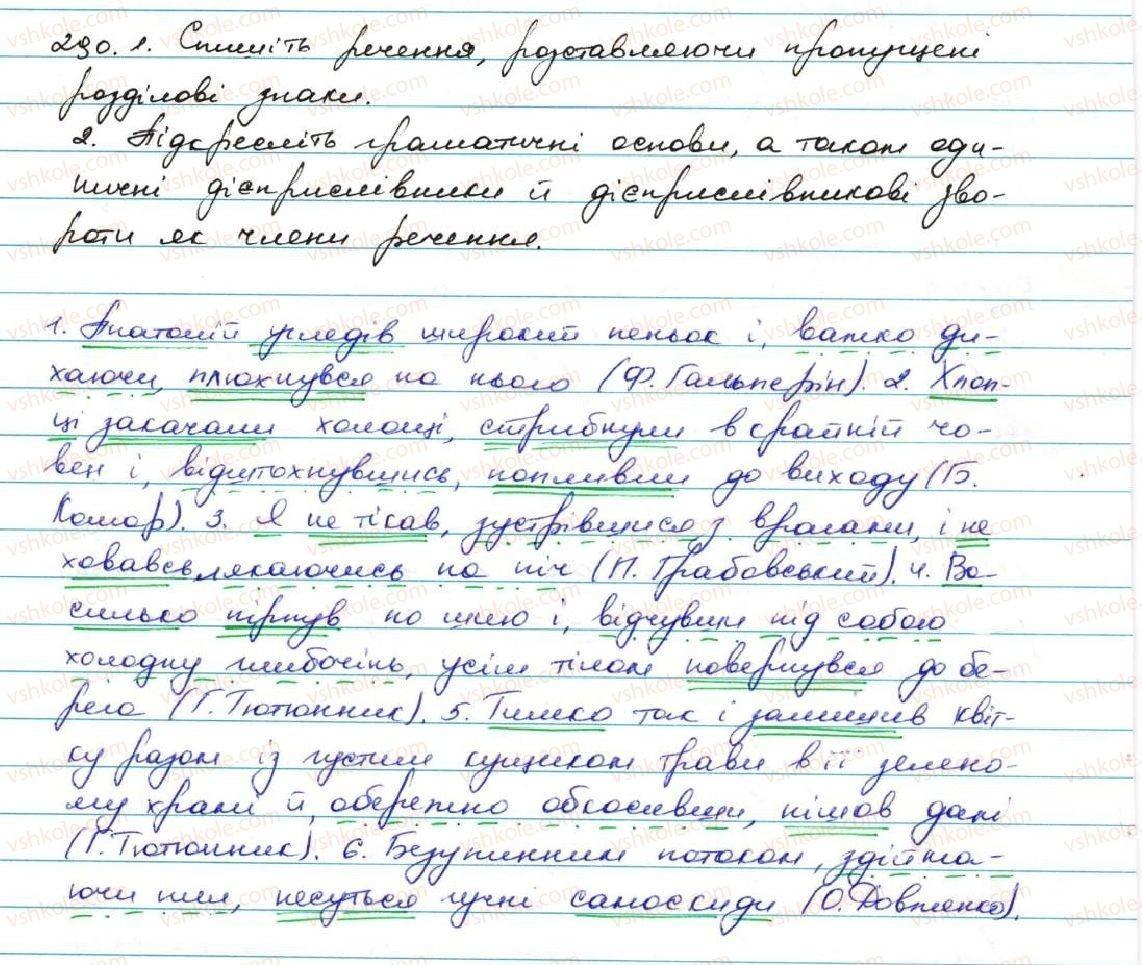 290. 1. Спишіть речення, розставляючи пропущені
розділові знаки.
2. Підкресліть граматичні основи, а також оди-
ничні дієприслівники й дієприслівникові зво-
роти як члени речення.
1. Анатолій угледів широкий пеньок і, важко ди-
хаючи, плюхнувся на нього (Ф. Гальперін). 2. Хлоп-
ці закачали холоші, стрибнули в крайній чо-
вен і, відштохнувшись, попливли до виходу (Б.
Комар). 3. Я не тікав, зустрівшися з врагами, і не
ховавсь, лякаючись на піч (П. Грабовський). 4. Ва-
силько пірнув по шию і, відчувши під собою
холодну глибочінь, усім тілом повернувся до бе-
рега (Г. Тютюнник). 5. Тимко так і залишив квіт-
ку разом із густим кущиком трави в її зелено-
му храмі й, обережно обкосивши, пішов далі
(Г. Тютюнник). 6. Безупинним потоком, здійма-
ючи пил, несуться гучні самоскиди (О. Довженко).